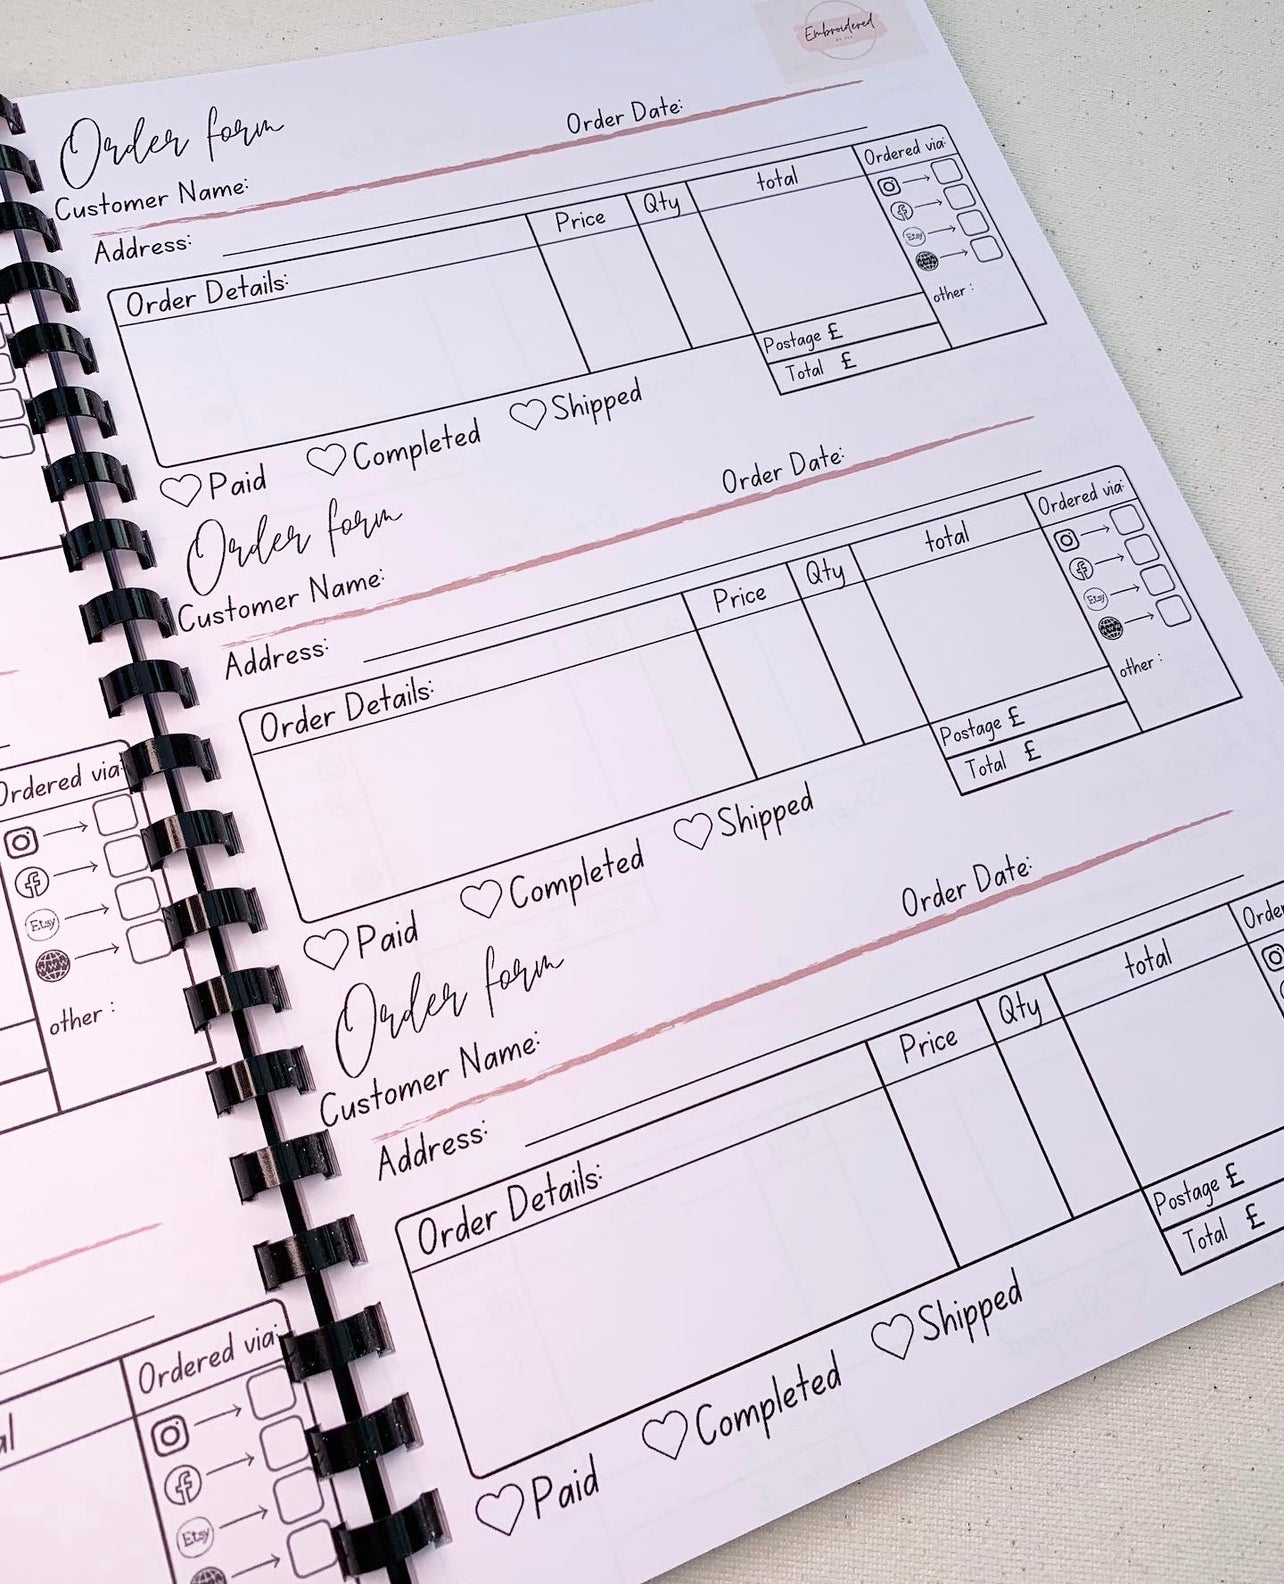 Embroidered
Order form
Order Date:
Customer Name:
Address:
Order Details:
Price
Qty
total
Ordered via:
Etsy
www
other :
Postage £
Total £
Paid
Completed
Shipped
Order form
Order Date:
Customer Name:
Address:
Order Details:
Price
Qty
total
Ordered via:
Etsy
www
other :
Postage £
Total £
Paid
Completed
Shipped
Order form
Order Date:
Customer Name:
Address:
Order Details:
Price
Qty
total
Order
Postage £
Total £
Paid
Completed
Shipped
Ordered via:
Etsy
www
other :
Ordered via:
al
Etsy